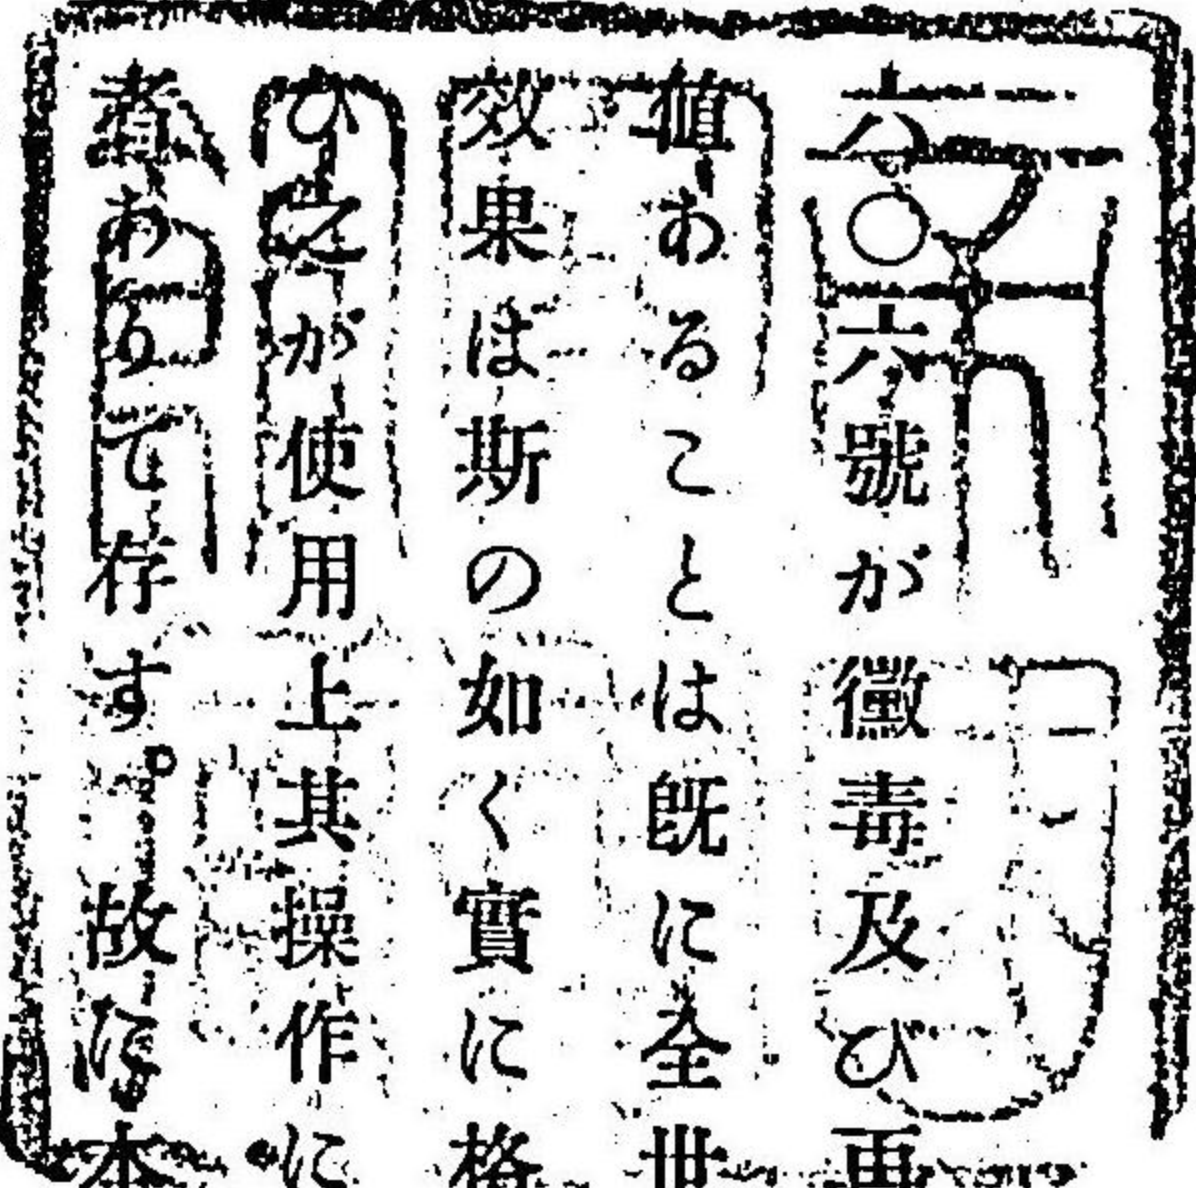 六〇六號が黴毒及び再
値あることは既に全世
效果は斯の如く實に格
ひ之が使用上其操作に
者ありて存す。故に本